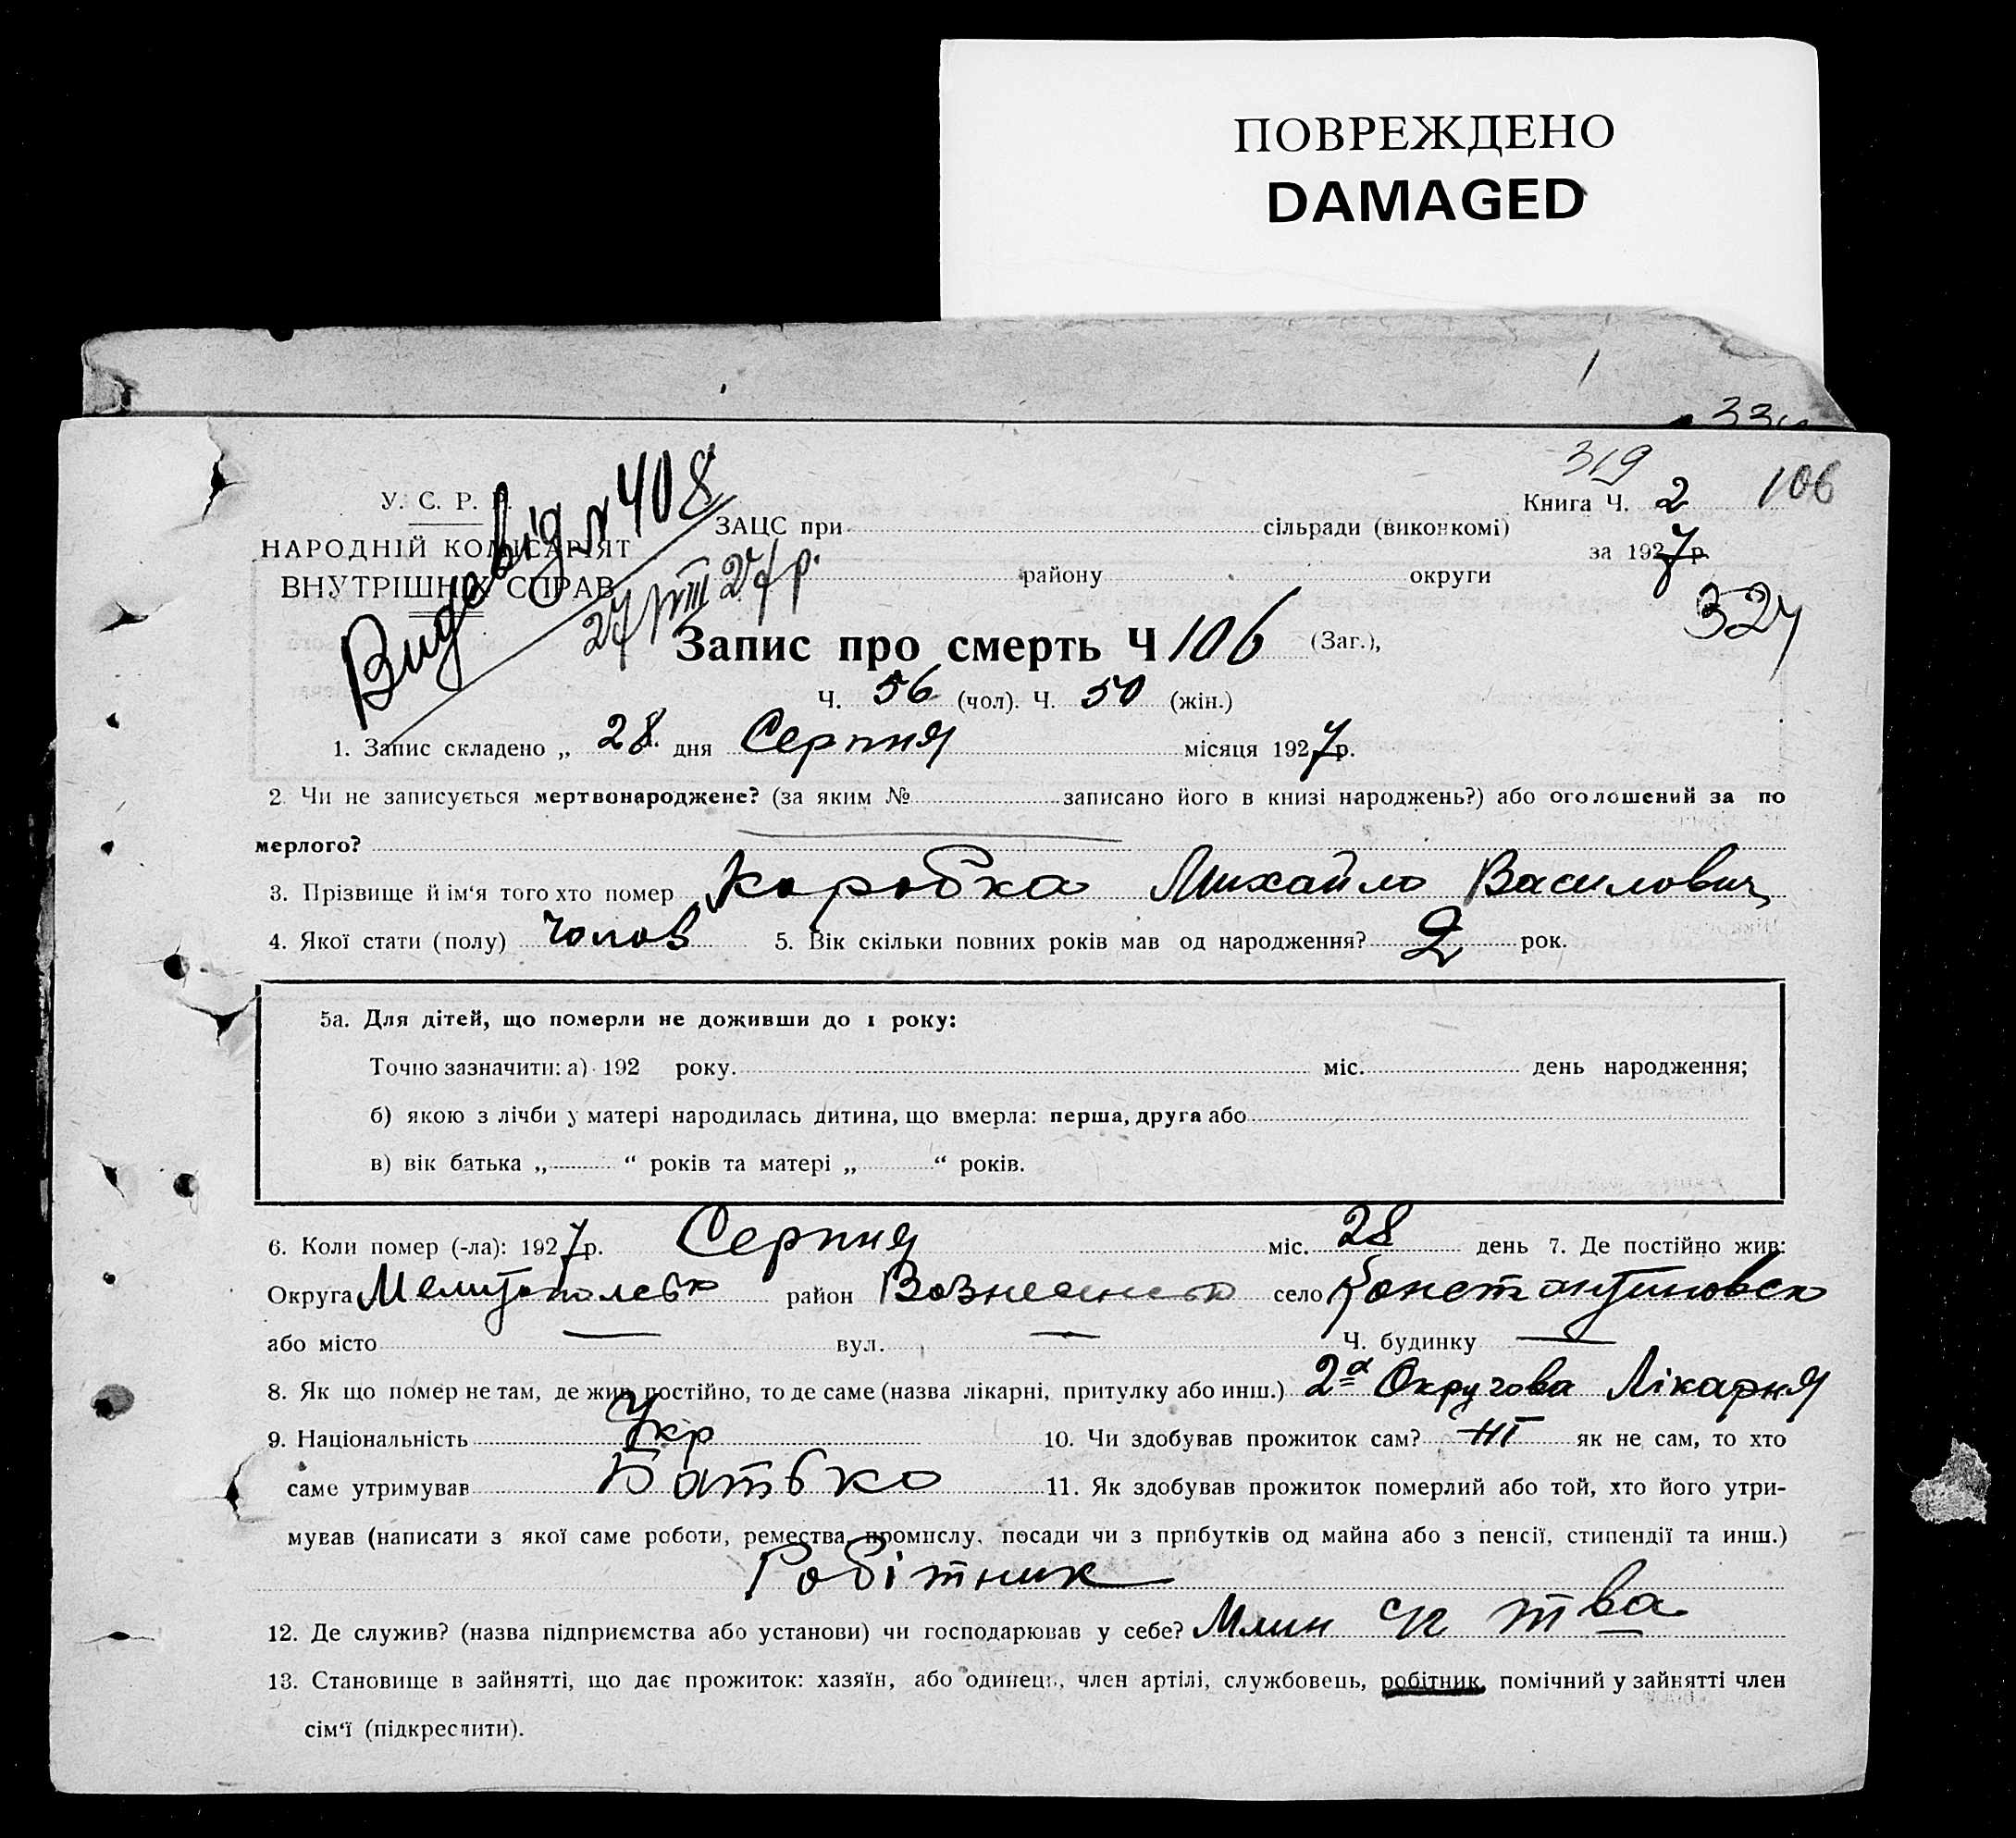 ПОВРЕЖДЕНО
DAMAGED
319
106
У. С. Р. Р.
Видо від № 408
27/VIII 27 р.
НАРОДНІЙ КОМІСАРІЯТ
ВНУТРІШНІХ СПРАВ
Книга Ч. 2
ЗАЦС при сільради (виконкомі)
за 1927 р.
району округи
324
Запис про смерть Ч 106 (Заг.),
Ч. 56 (чол). Ч. 50 (жін.)
1. Запис складено „ 28 дня Серпня місяця 1927 р.
2. Чи не записується мертвонароджене? (за яким № записано його в книзі народжень?) або оголошений за по
мерлого?
3. Прізвище й ім‘я того хто помер Коробка Михайло Василович
4. Якої стати (полу) Чолов 5. Вік скільки повних років мав од народження? 2 рок.
5а. Для дітей, що померли не доживши до 1 року:
Точно зазначити: а) 192 року. міс. день народження;
б) якою з лічби у матері народилась дитина, що вмерла: перша, друга або
в) вік батька „ “ років та матері „ “ років.
6. Коли помер (-ла): 1927 р. Серпня міс. 28 день 7. Де постійно жив:
Округа Мелітопольск район село Константиновск
або місто — вул. — Ч. будинку —
8. Як що помер не там, де жив постійно, то де саме (назва лікарні, притулку або инш.) 2а Округова Лікарня
9. Національність Укр 10. Чи здобував прожиток сам? Ні як не сам, то хто
саме утримував Батько 11. Як здобував прожиток померлий або той, хто його утри-
мував (написати з якої саме роботи, ремества, промислу, посади чи з прибутків од майна або з пенсії, стипендії та инш.)
Робітник
12. Де служив? (назва підприємства або установи) чи господарював у себе? Млин с/г т ва
13. Становище в зайнятті, що дає прожиток: хазяїн, або одинець, член артілі, службовець, робітник, помічний у зайнятті член
сім‘ї (підкреслити).